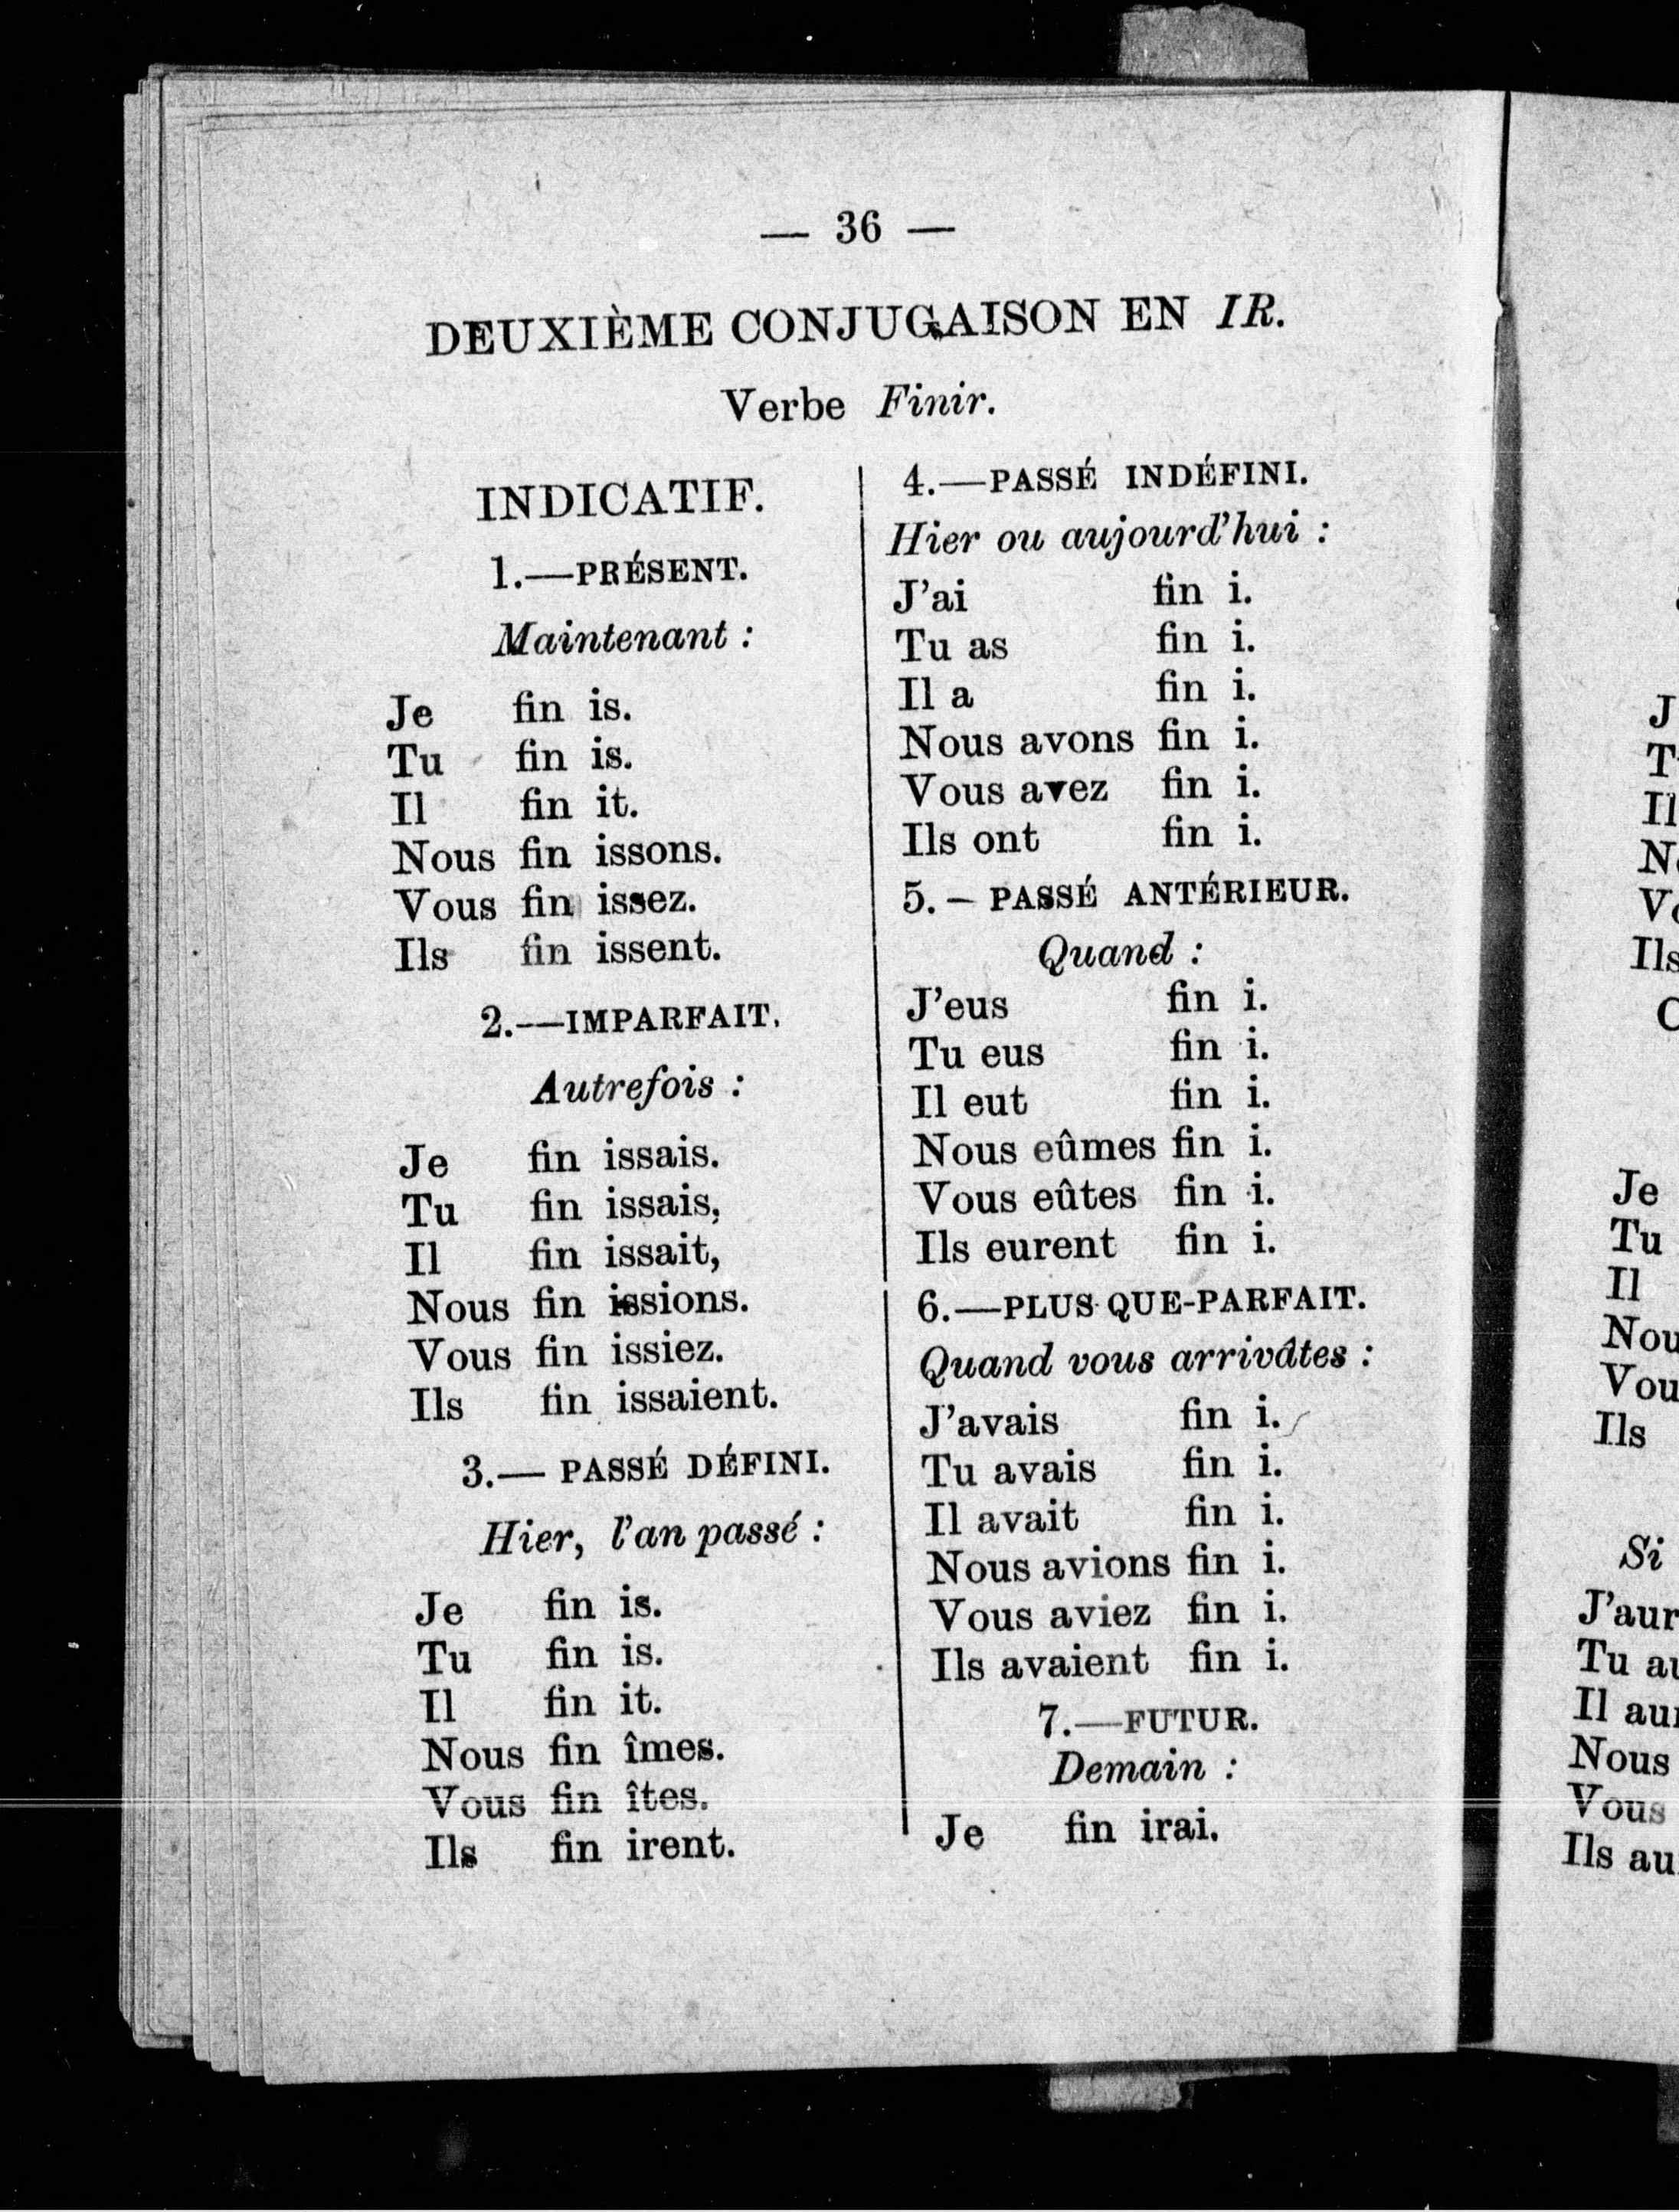 — 36 —
DEUXIÈME CONJUGAISON EN IR.
Verbe Finir.
INDICATIF.
1.—PRÉSENT.
Maintenant :
Je fin is.
Tu fin is.
Il fin it.
Nous fin issons.
Vous fin issez.
Ils fin issent.
2.—IMPARFAIT.
Autrefois :
Je fin issais.
Tu fin issais,
Il fin issait,
Nous fin issions.
Vous fin issiez.
Ils fin issaient.
3.— PASSÉ DÉFINI.
Hier, l'an passé :
Je fin is.
Tu fin is.
Il fin it.
Nous fin îmes.
Vous fin îtes.
Ils fin irent.
4.—PASSÉ INDÉFINI.
Hier ou aujourd'hui :
J'ai fin i.
Tu as fin i.
Il a fin i.
Nous avons fin i.
Vous avez fin i.
Ils ont fin i.
5.— PASSÉ ANTÉRIEUR.
Quand :
J'eus fin i.
Tu eus fin i.
Il eut fin i.
Nous eûmes fin i.
Vous eûtes fin i.
Ils eurent fin i.
6.—PLUS-QUE-PARFAIT.
Quand vous arrivâtes :
J'avais fin i.
Tu avais fin i.
Il avait fin i.
Nous avions fin i.
Vous aviez fin i.
Ils avaient fin i.
7.—FUTUR.
Demain :
Je fin irai.
Ils
Je
Tu
Il
Ils
Si
Tu
Il
Nous
Vous
Ils